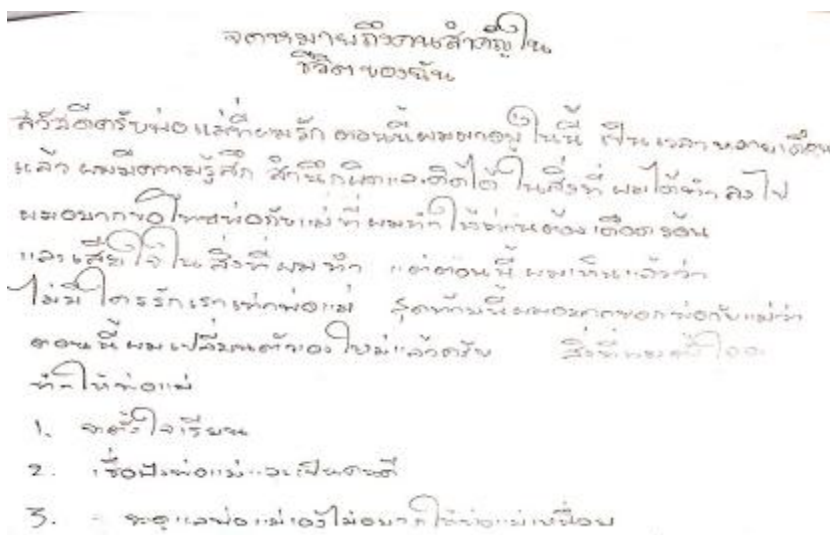 จดหมายถึงคนสำคัญใน
ชีวิตของฉัน
สวัสดีครับพ่อแม่ที่ผมรัก ตอนนี้ผมมาอยู่ในนี้ เป็นเวลาหลายเดือน
แล้ว ผมมีความรู้สึก สำนึกผิดและคิดได้ ในสิ่งที่ ผมได้ทำ ลงไป
ผมอยากขอโทษพ่อกับแม่ ที่ ผมทำให้ท่านต้อง เดือดร้อน
และเสียใจใน สิ่งที่ ผม ทำ แต่ตอนนี้ ผมเห็นแล้วว่า
ไม่มีใครรักเราเท่าพ่อแม่ สุดท้ายนี้ผมอยากบอกพ่อกับแม่ว่า
ตอนนี้ ผมเปลี่ยนตัวเองใหม่แล้วครับ สิ่งที่ผมตั้งใจจะ
ทำให้พ่อแม่
1. จะตั้งใจเรียน
2. เชื่อฟังพ่อแม่และเป็นคนดี
3. - จะดูแลพ่อแม่เองไม่อยากให้พ่อแม่เหนื่อย